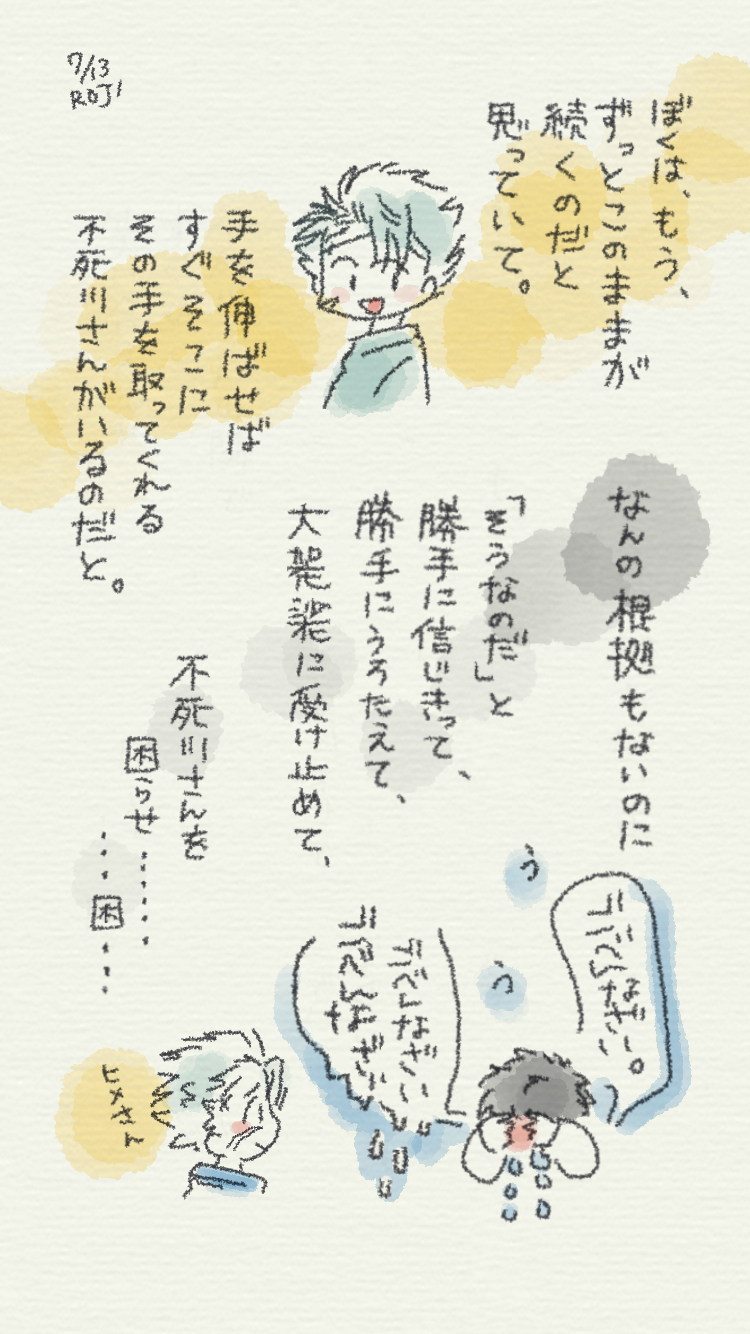 7/13
ROJI
ぼくは、もう、
ずっとこのままが
続くのだと
思っていて。
手を伸ばせば
すぐそこに
その手を取ってくれる
不死川さんがいるのだと。
なんの根拠もないのに
「そうなのだ」と
勝手に信じきって、
勝手にうろたえて、
大袈裟に受け止めて、
不死川さんを
困らせ……
……困……
う
う
ごべんなざい。
ごべんなざい
ヒメさん